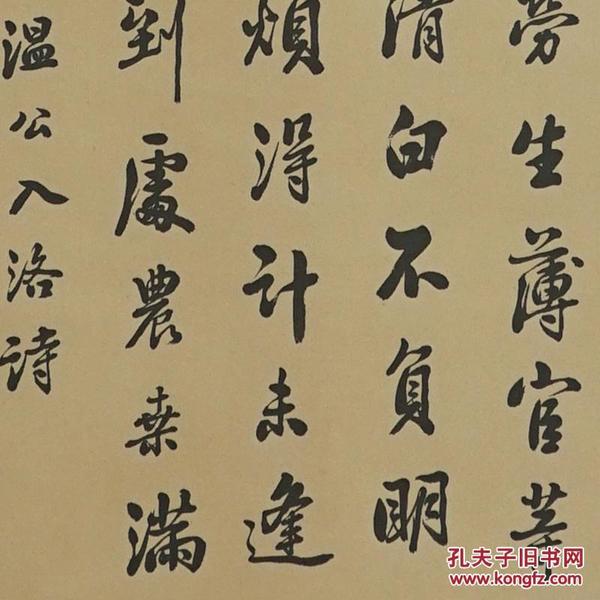 勞生薄官
清白不負明
煩淂計未逢
到處農桒滿
温公入洛詩
孔夫子旧书网
www.kongfz.com